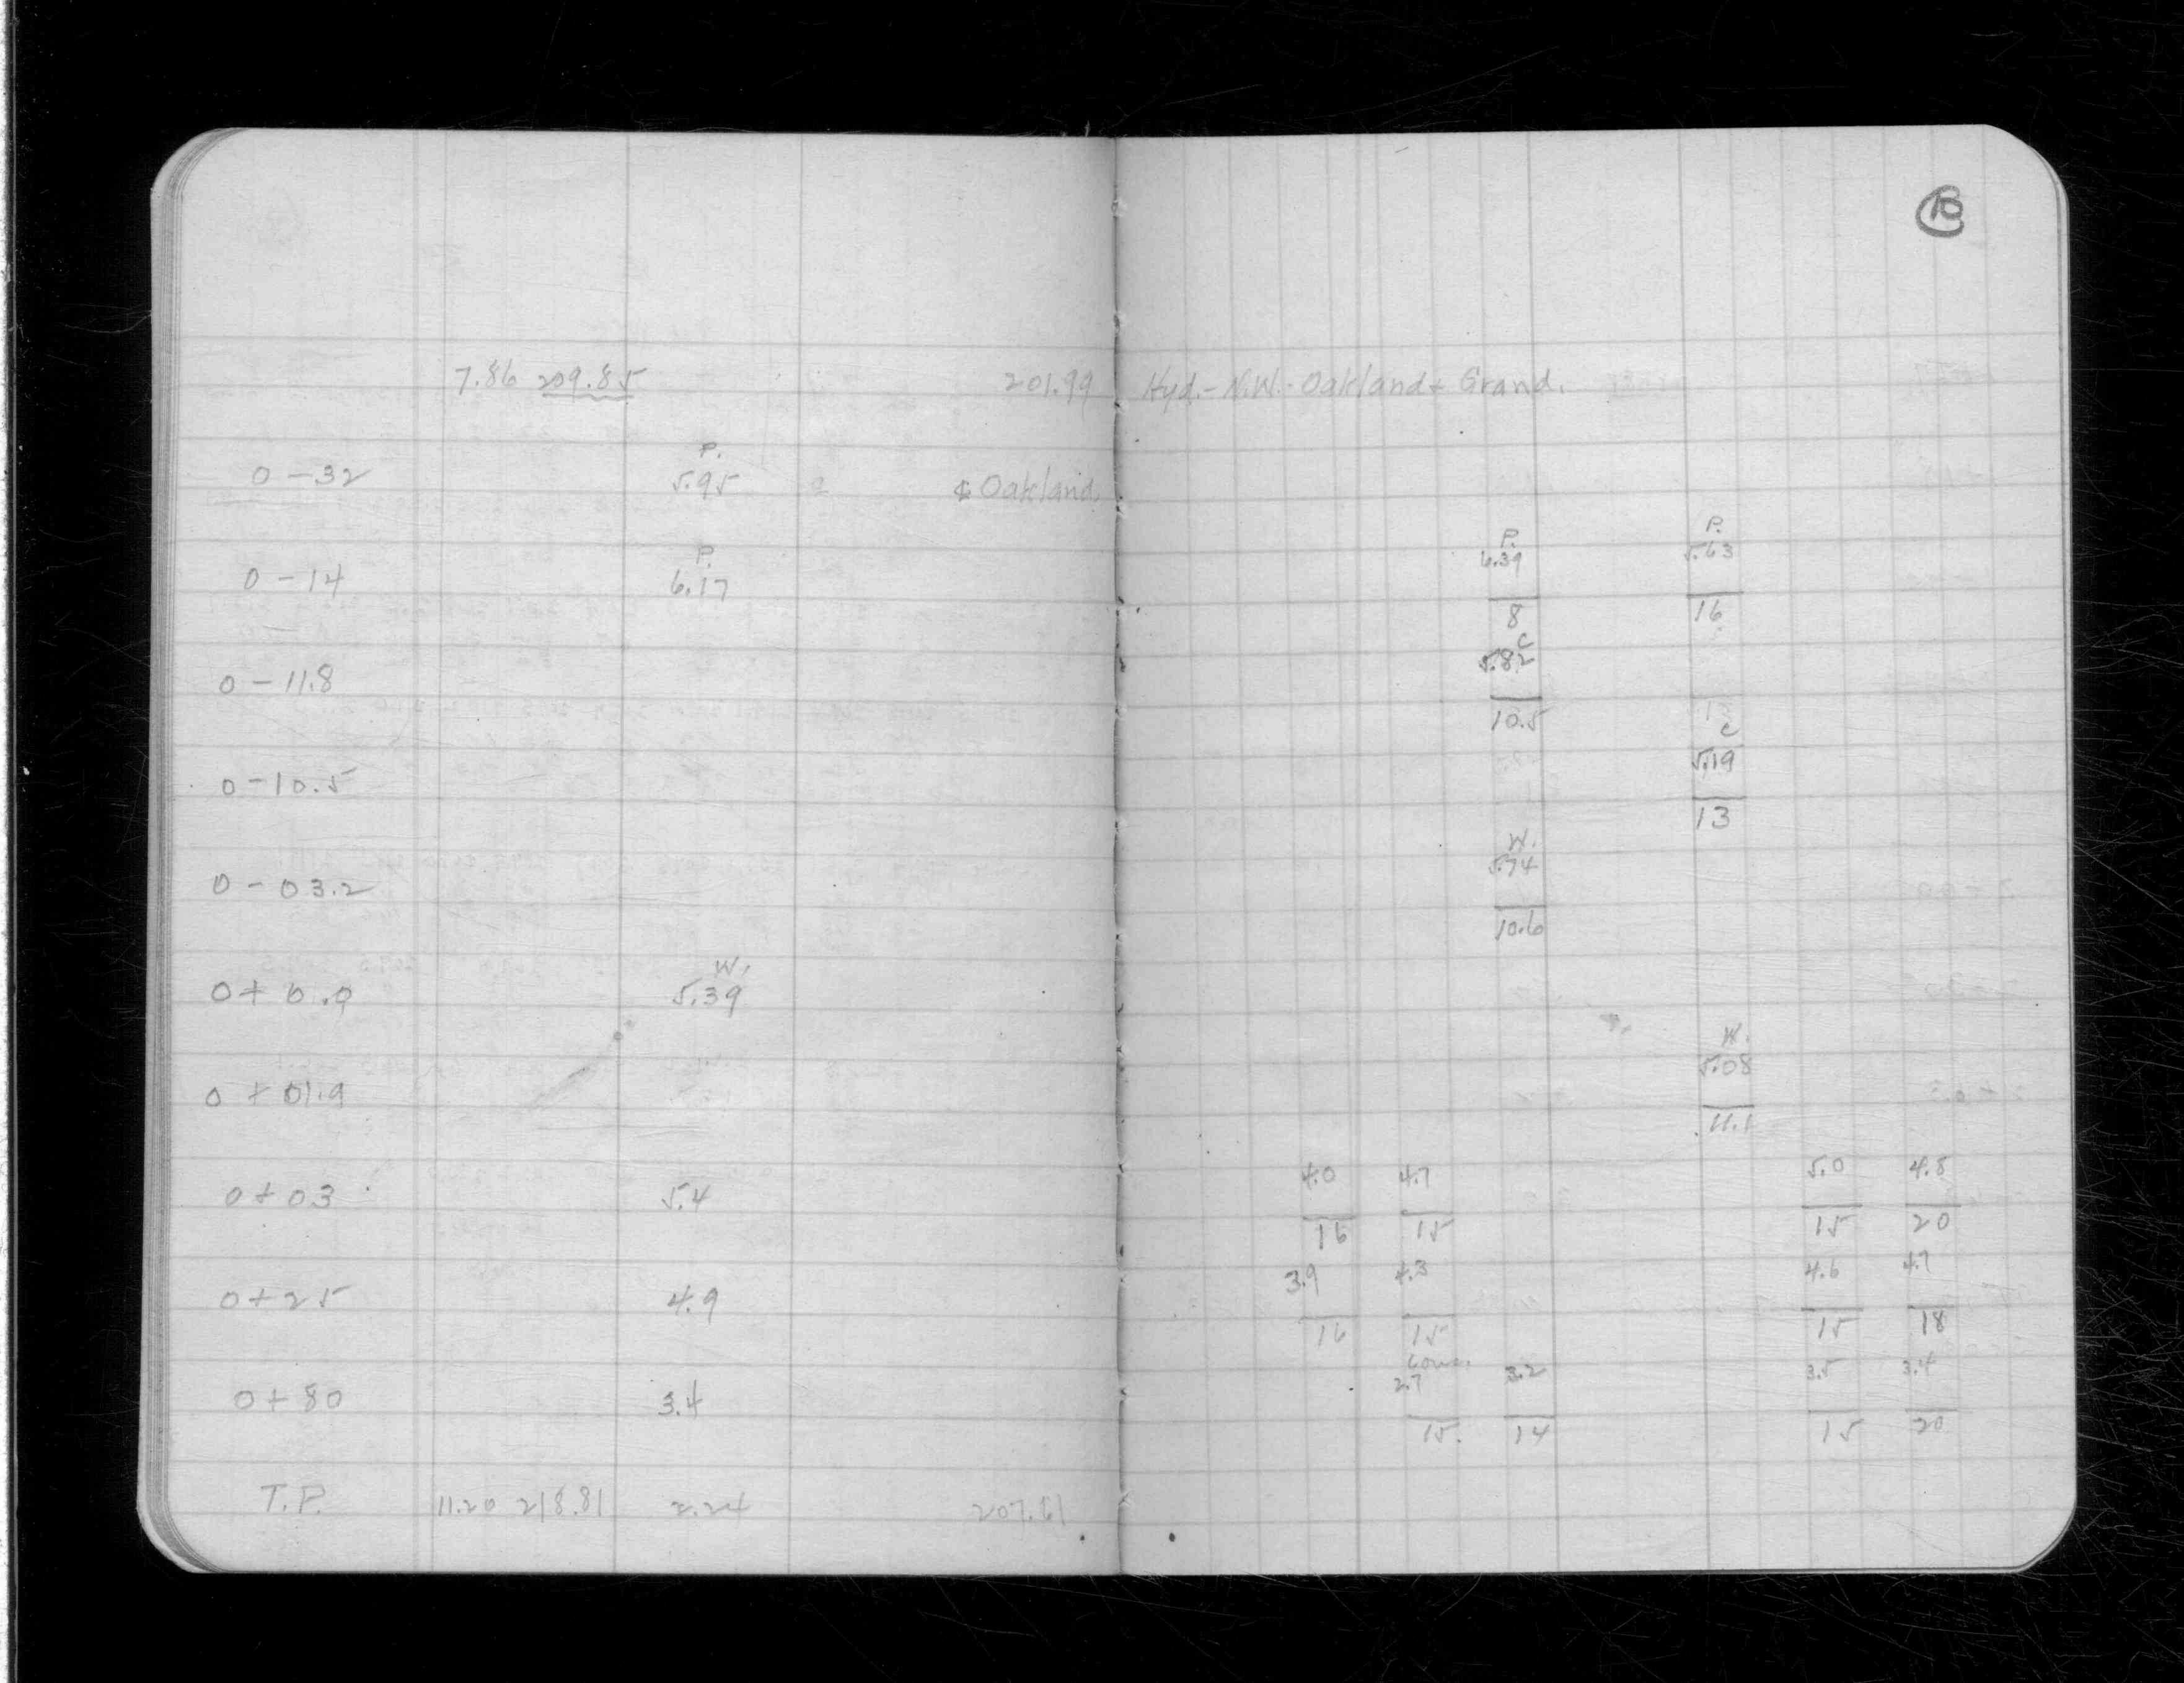 7.86 209.85 201.99 Hyd. - N.W. - Oakland & Grand.
P.
0 - 32 5.95 ℄ Oakland.
P. P. P.
0 - 14 6.17 6.39 5.63
8 16
C
0 - 11.8 5.82
10.5
C
0 - 10.5 5.19
13
W.
0 - 03.2 5.74
10.6
W.
0 + 0.0 5.39
W.
0 + 01.9 5.08
11.1
0 + 03 5.4 4.0 4.7 5.0 4.8
16 15 15 20
0 + 25 4.9 3.9 4.3 4.6 4.7
16 15 15 18
Conc.
0 + 80 3.4 2.7 3.2 3.5 3.4
15. 14 15 20
T.P. 11.20 218.81 2.24 207.61